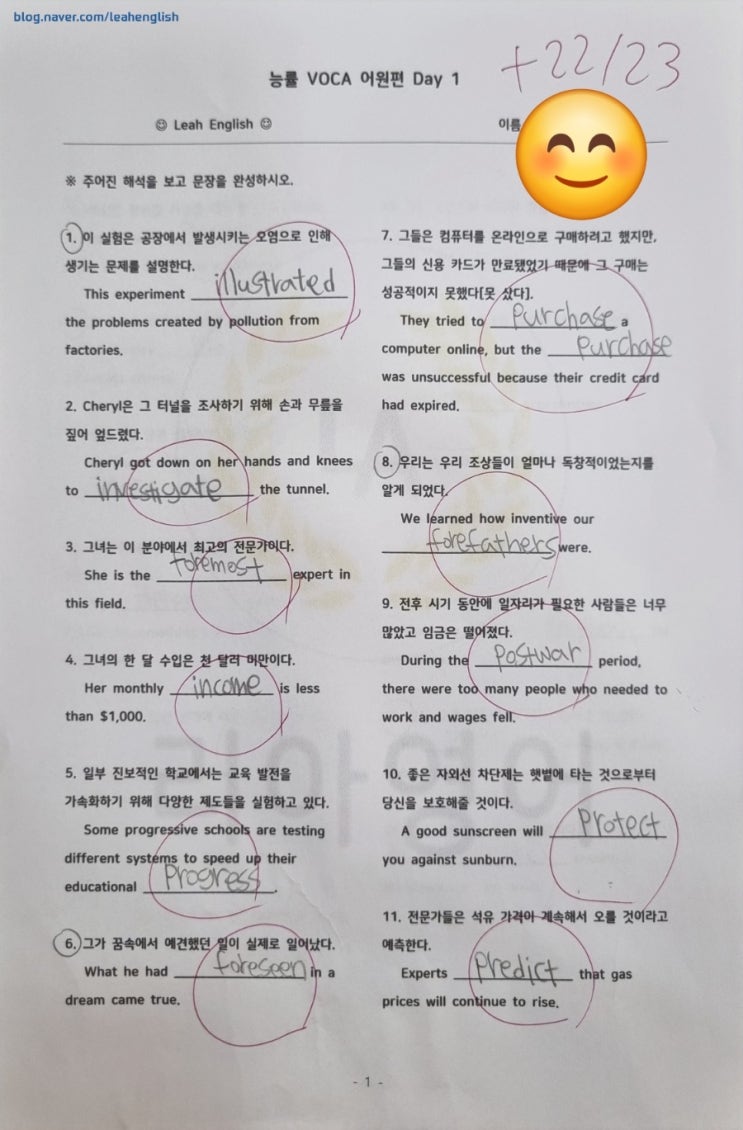 blog.naver.com/leahenglish
+22/23
능률 VOCA 어원편 Day 1
☺ Leah English ☺
이름
※ 주어진 해석을 보고 문장을 완성하시오.
1. 이 실험은 공장에서 발생시키는 오염으로 인해
생기는 문제를 설명한다.
This experiment illustrated
the problems created by pollution from
factories.
2. Cheryl은 그 터널을 조사하기 위해 손과 무릎을
짚어 엎드렸다.
Cheryl got down on her hands and knees
to investigate the tunnel.
3. 그녀는 이 분야에서 최고의 전문가이다.
She is the foremost expert in
this field.
4. 그녀의 한 달 수입은 천 달러 미만이다.
Her monthly income is less
than $1,000.
5. 일부 진보적인 학교에서는 교육 발전을
가속화하기 위해 다양한 제도들을 실험하고 있다.
Some progressive schools are testing
different systems to speed up their
educational Progress.
6. 그가 꿈속에서 예견했던 일이 실제로 일어났다.
What he had foreseen in a
dream came true.
7. 그들은 컴퓨터를 온라인으로 구매하려고 했지만,
그들의 신용 카드가 만료됐었기 때문에 그 구매는
성공적이지 못했다[못 샀다].
They tried to purchase a
computer online, but the purchase
was unsuccessful because their credit card
had expired.
8. 우리는 우리 조상들이 얼마나 독창적이었는지를
알게 되었다.
We learned how inventive our
forefathers were.
9. 전후 시기 동안에 일자리가 필요한 사람들은 너무
많았고 임금은 떨어졌다.
During the postwar period,
there were too many people who needed to
work and wages fell.
10. 좋은 자외선 차단제는 햇볕에 타는 것으로부터
당신을 보호해줄 것이다.
A good sunscreen will Protect
you against sunburn.
11. 전문가들은 석유 가격이 계속해서 오를 것이라고
예측한다.
Experts Predict that gas
prices will continue to rise.
- 1 -